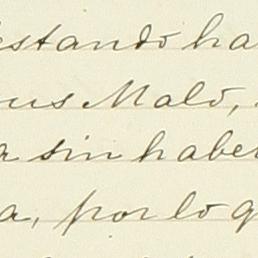 estando ha
us Malo,
a sin haber
a, por lo q